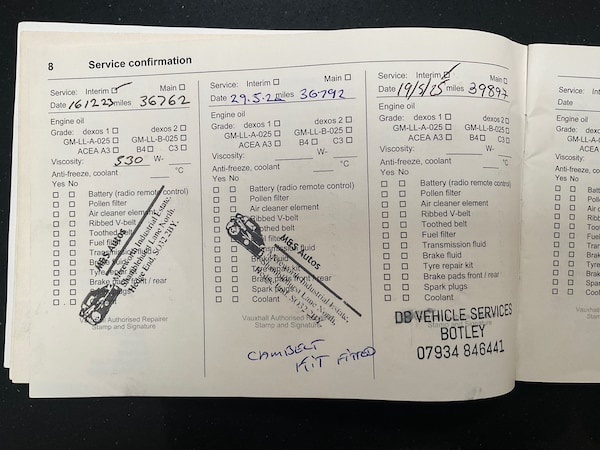 8 Service confirmation
Service: Interim Main
Date 161223 miles 36762
Engine oil
Grade: dexos 1 dexos 2
GM-LL-A-025 GM-LL-B-025
ACEA A3 B4 C3
Viscosity: 530 W-
Anti-freeze, coolant °C
Yes No
Battery (radio remote control)
Pollen filter
Air cleaner element
Ribbed V-belt
Toothed belt
Fuel filter
Transmission fluid
Brake fluid
Tyre repair kit
Brake pads front / rear
Spark plugs
Coolant
M&S Autos
Industrial Estate,
Lane North,
Hedge End, SO32 2HY.
Vauxhall Authorised Repairer
Stamp and Signature
Service: Interim Main
Date 29.5. miles 36792
Engine oil
Grade: dexos 1 dexos 2
GM-LL-A-025 GM-LL-B-025
ACEA A3 B4 C3
Viscosity: W-
Anti-freeze, coolant °C
Yes No
Battery (radio remote control)
Pollen filter
Air cleaner element
Ribbed V-belt
Toothed belt
Fuel filter
Transmission fluid
Brake fluid
Tyre repair kit
Brake pads front / rear
Spark plugs
Coolant
M&S Autos
Industrial Estate,
Lane North,
SO32 2HY.
Vauxhall Authorised Repairer
Stamp and Signature
CAMBELT
KIT FITTED
Service: Interim Main
Date 19/5/25 miles 39897
Engine oil
Grade: dexos 1 dexos 2
GM-LL-A-025 GM-LL-B-025
ACEA A3 B4 C3
Viscosity: W-
Anti-freeze, coolant °C
Yes No
Battery (radio remote control)
Pollen filter
Air cleaner element
Ribbed V-belt
Toothed belt
Fuel filter
Transmission fluid
Brake fluid
Tyre repair kit
Brake pads front / rear
Spark plugs
Coolant
DB VEHICLE SERVICES
BOTLEY
07934 846441
Service:
Date
Engine oil
Grade:
GM-LL-
ACE
Viscosity:
Anti-freeze
Yes No